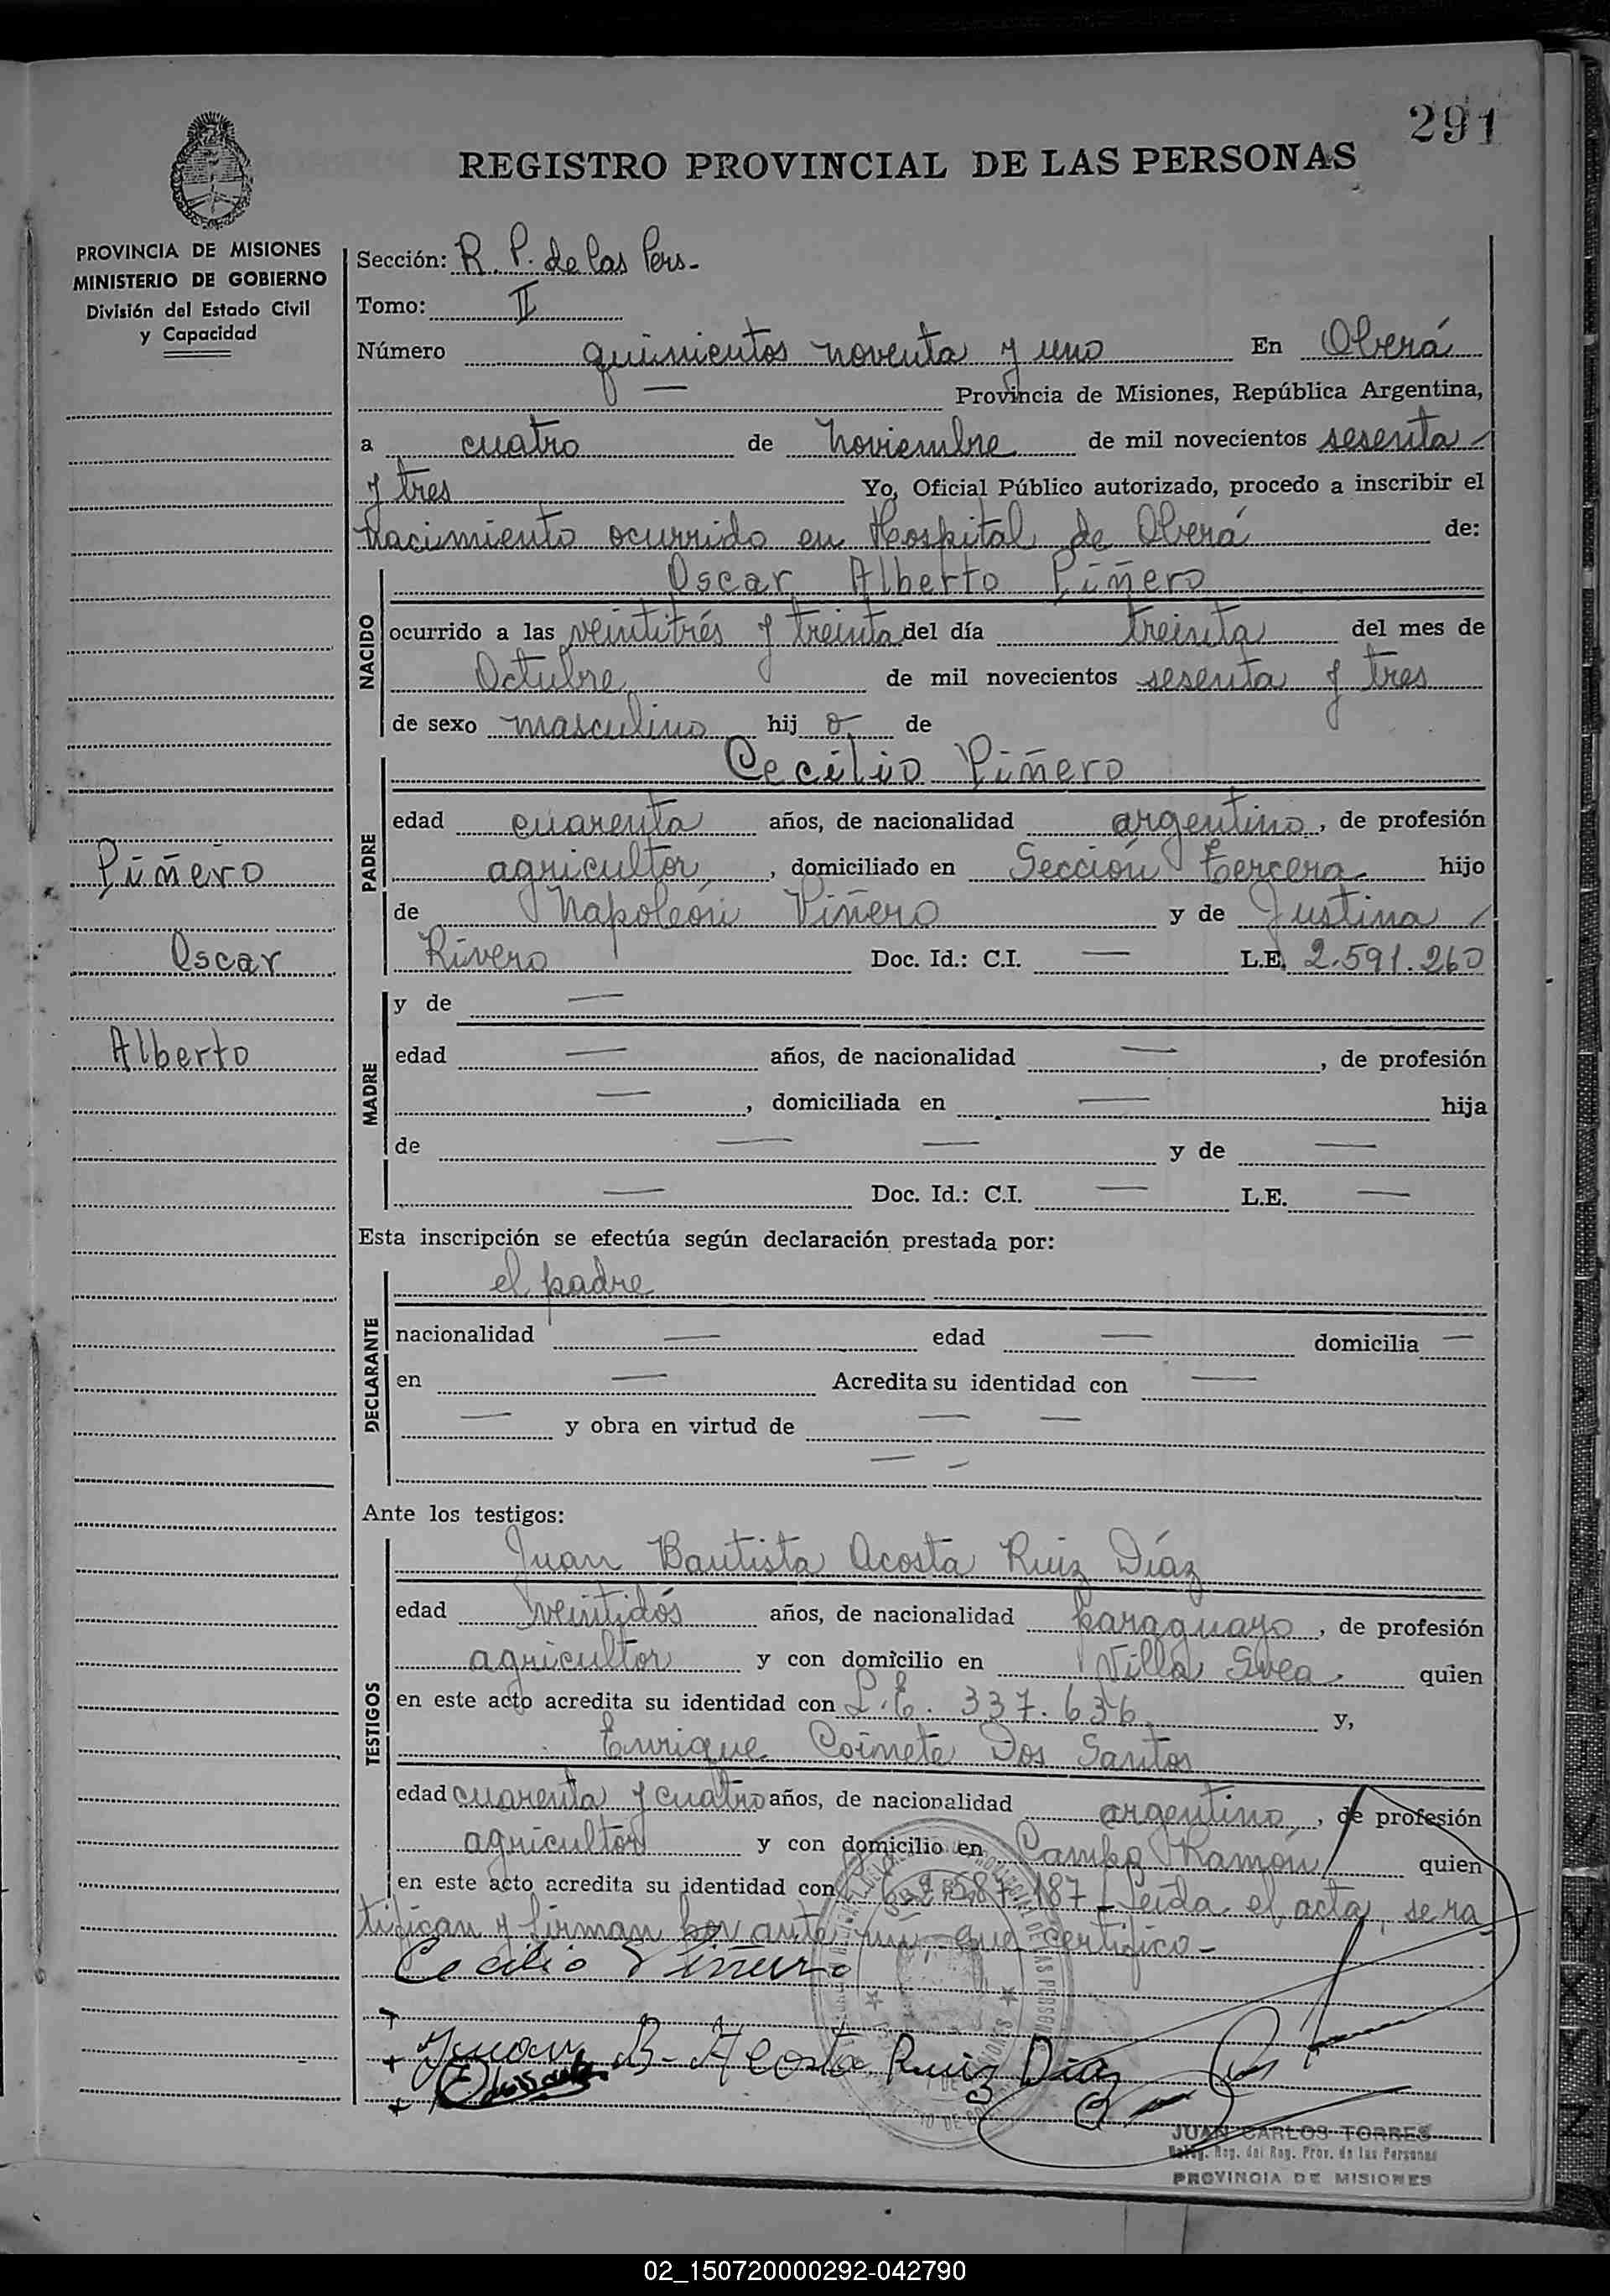 291
REGISTRO PROVINCIAL DE LAS PERSONAS
PROVINCIA DE MISIONES
MINISTERIO DE GOBIERNO
División del Estado Civil
y Capacidad
Sección: R. P. de las Pers-
Tomo: II
Número quinientos noventa y uno En Oberá
— Provincia de Misiones, República Argentina,
a cuatro de Noviembre de mil novecientos sesenta
y tres Yo, Oficial Público autorizado, procedo a inscribir el
nacimiento ocurrido en Hospital de Oberá de:
NACIDO
Oscar Alberto Piñero
ocurrido a las veintitrés y treinta del día treinta del mes de
Octubre de mil novecientos sesenta y tres
de sexo masculino hij o de
PADRE
Cecilio Piñero
edad cuarenta años, de nacionalidad argentino, de profesión
agricultor, domiciliado en Sección Tercera hijo
de Napoleón Piñero y de Justina
Rivero Doc. Id.: C.I. — L.E. 2.591.260
Piñero
Oscar
Alberto
MADRE
y de —
edad — años, de nacionalidad —, de profesión
—, domiciliada en — hija
de — — y de —
— Doc. Id.: C.I. — L.E. —
Esta inscripción se efectúa según declaración prestada por:
DECLARANTE
el padre
nacionalidad — edad — domicilia —
en — Acredita su identidad con —
— y obra en virtud de — —
— –
Ante los testigos:
TESTIGOS
Juan Bautista Acosta Ruiz Díaz
edad veintidós años, de nacionalidad paraguayo, de profesión
agricultor y con domicilio en Villa Svea quien
en este acto acredita su identidad con L.E. 337.636 y,
Enrique Dos Santos
edad cuarenta y cuatro años, de nacionalidad argentino, de profesión
agricultor y con domicilio en Campo Ramón quien
en este acto acredita su identidad con 187- Leída el acta, se ra
tifican y firman por ante mí, que certifico-
Cecilio Piñero
Juan B- Acosta Ruiz Diaz
JUAN CARLOS TORRES
Reg. del Reg. Prov. de las Personas
PROVINCIA DE MISIONES
02_150720000292-042790